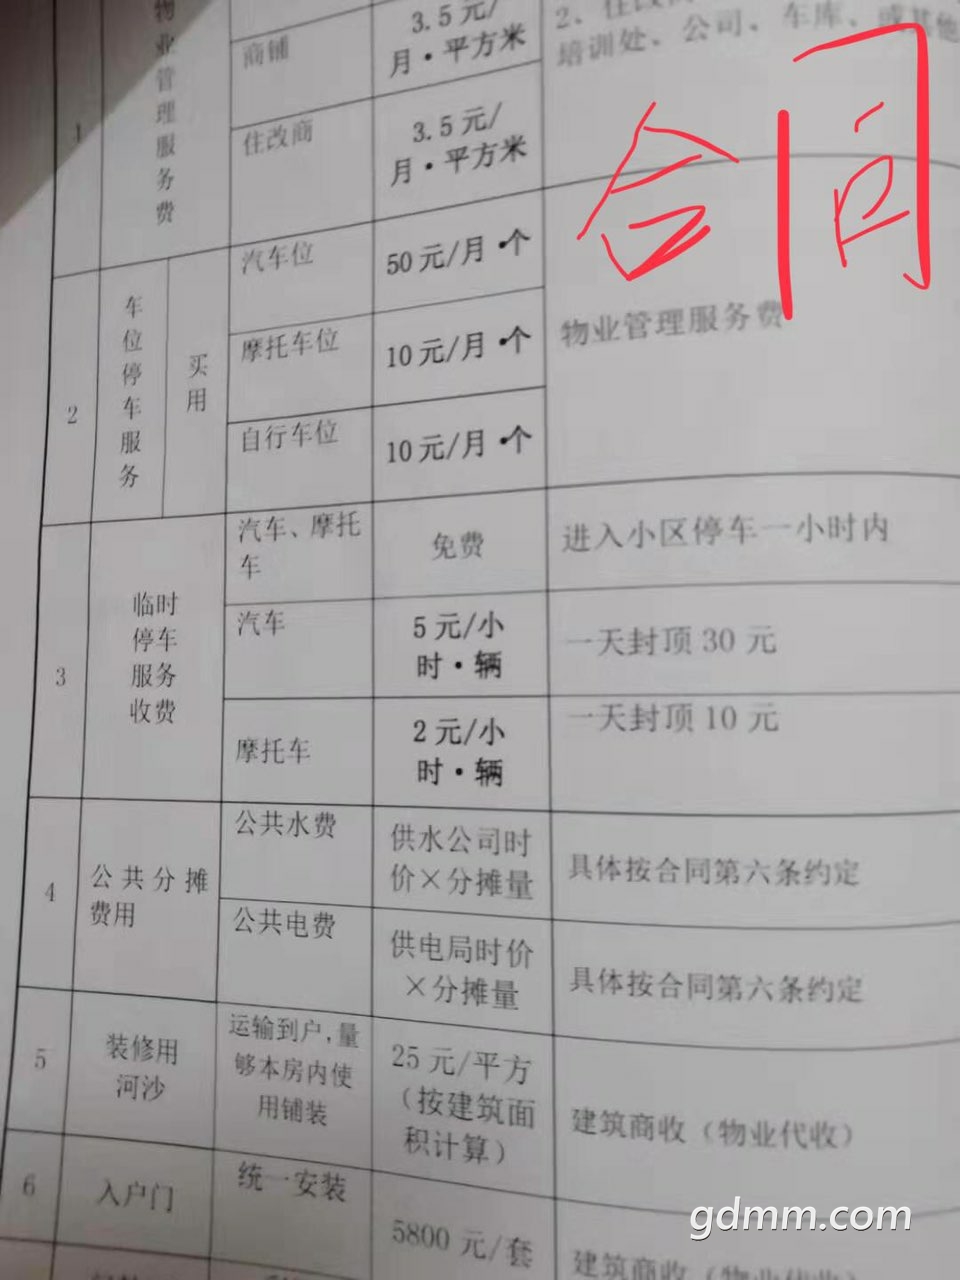 合同
物业管理服务费
1
商铺
3.5元/
月·平方米
2、住改商
培训处、公司、车库、或其他
住改商
3.5元/
月·平方米
2
车位停车服务
买用
汽车位
50元/月·个
物业管理服务费
摩托车位
10元/月·个
自行车位
10元/月·个
3
临时
停车
服务
收费
汽车、摩托
车
免费
进入小区停车一小时内
汽车
5元/小
时·辆
一天封顶30元
摩托车
2元/小
时·辆
一天封顶10元
4
公共分摊
费用
公共水费
供水公司时
价×分摊量
具体按合同第六条约定
公共电费
供电局时价
×分摊量
具体按合同第六条约定
5
装修用
河沙
运输到户,量
够本房内使
用铺装
25元/平方
(按建筑面
积计算)
建筑商收(物业代收)
6
入户门
统一安装
5800元/套
建筑商收(物业代收)
gdmm.com